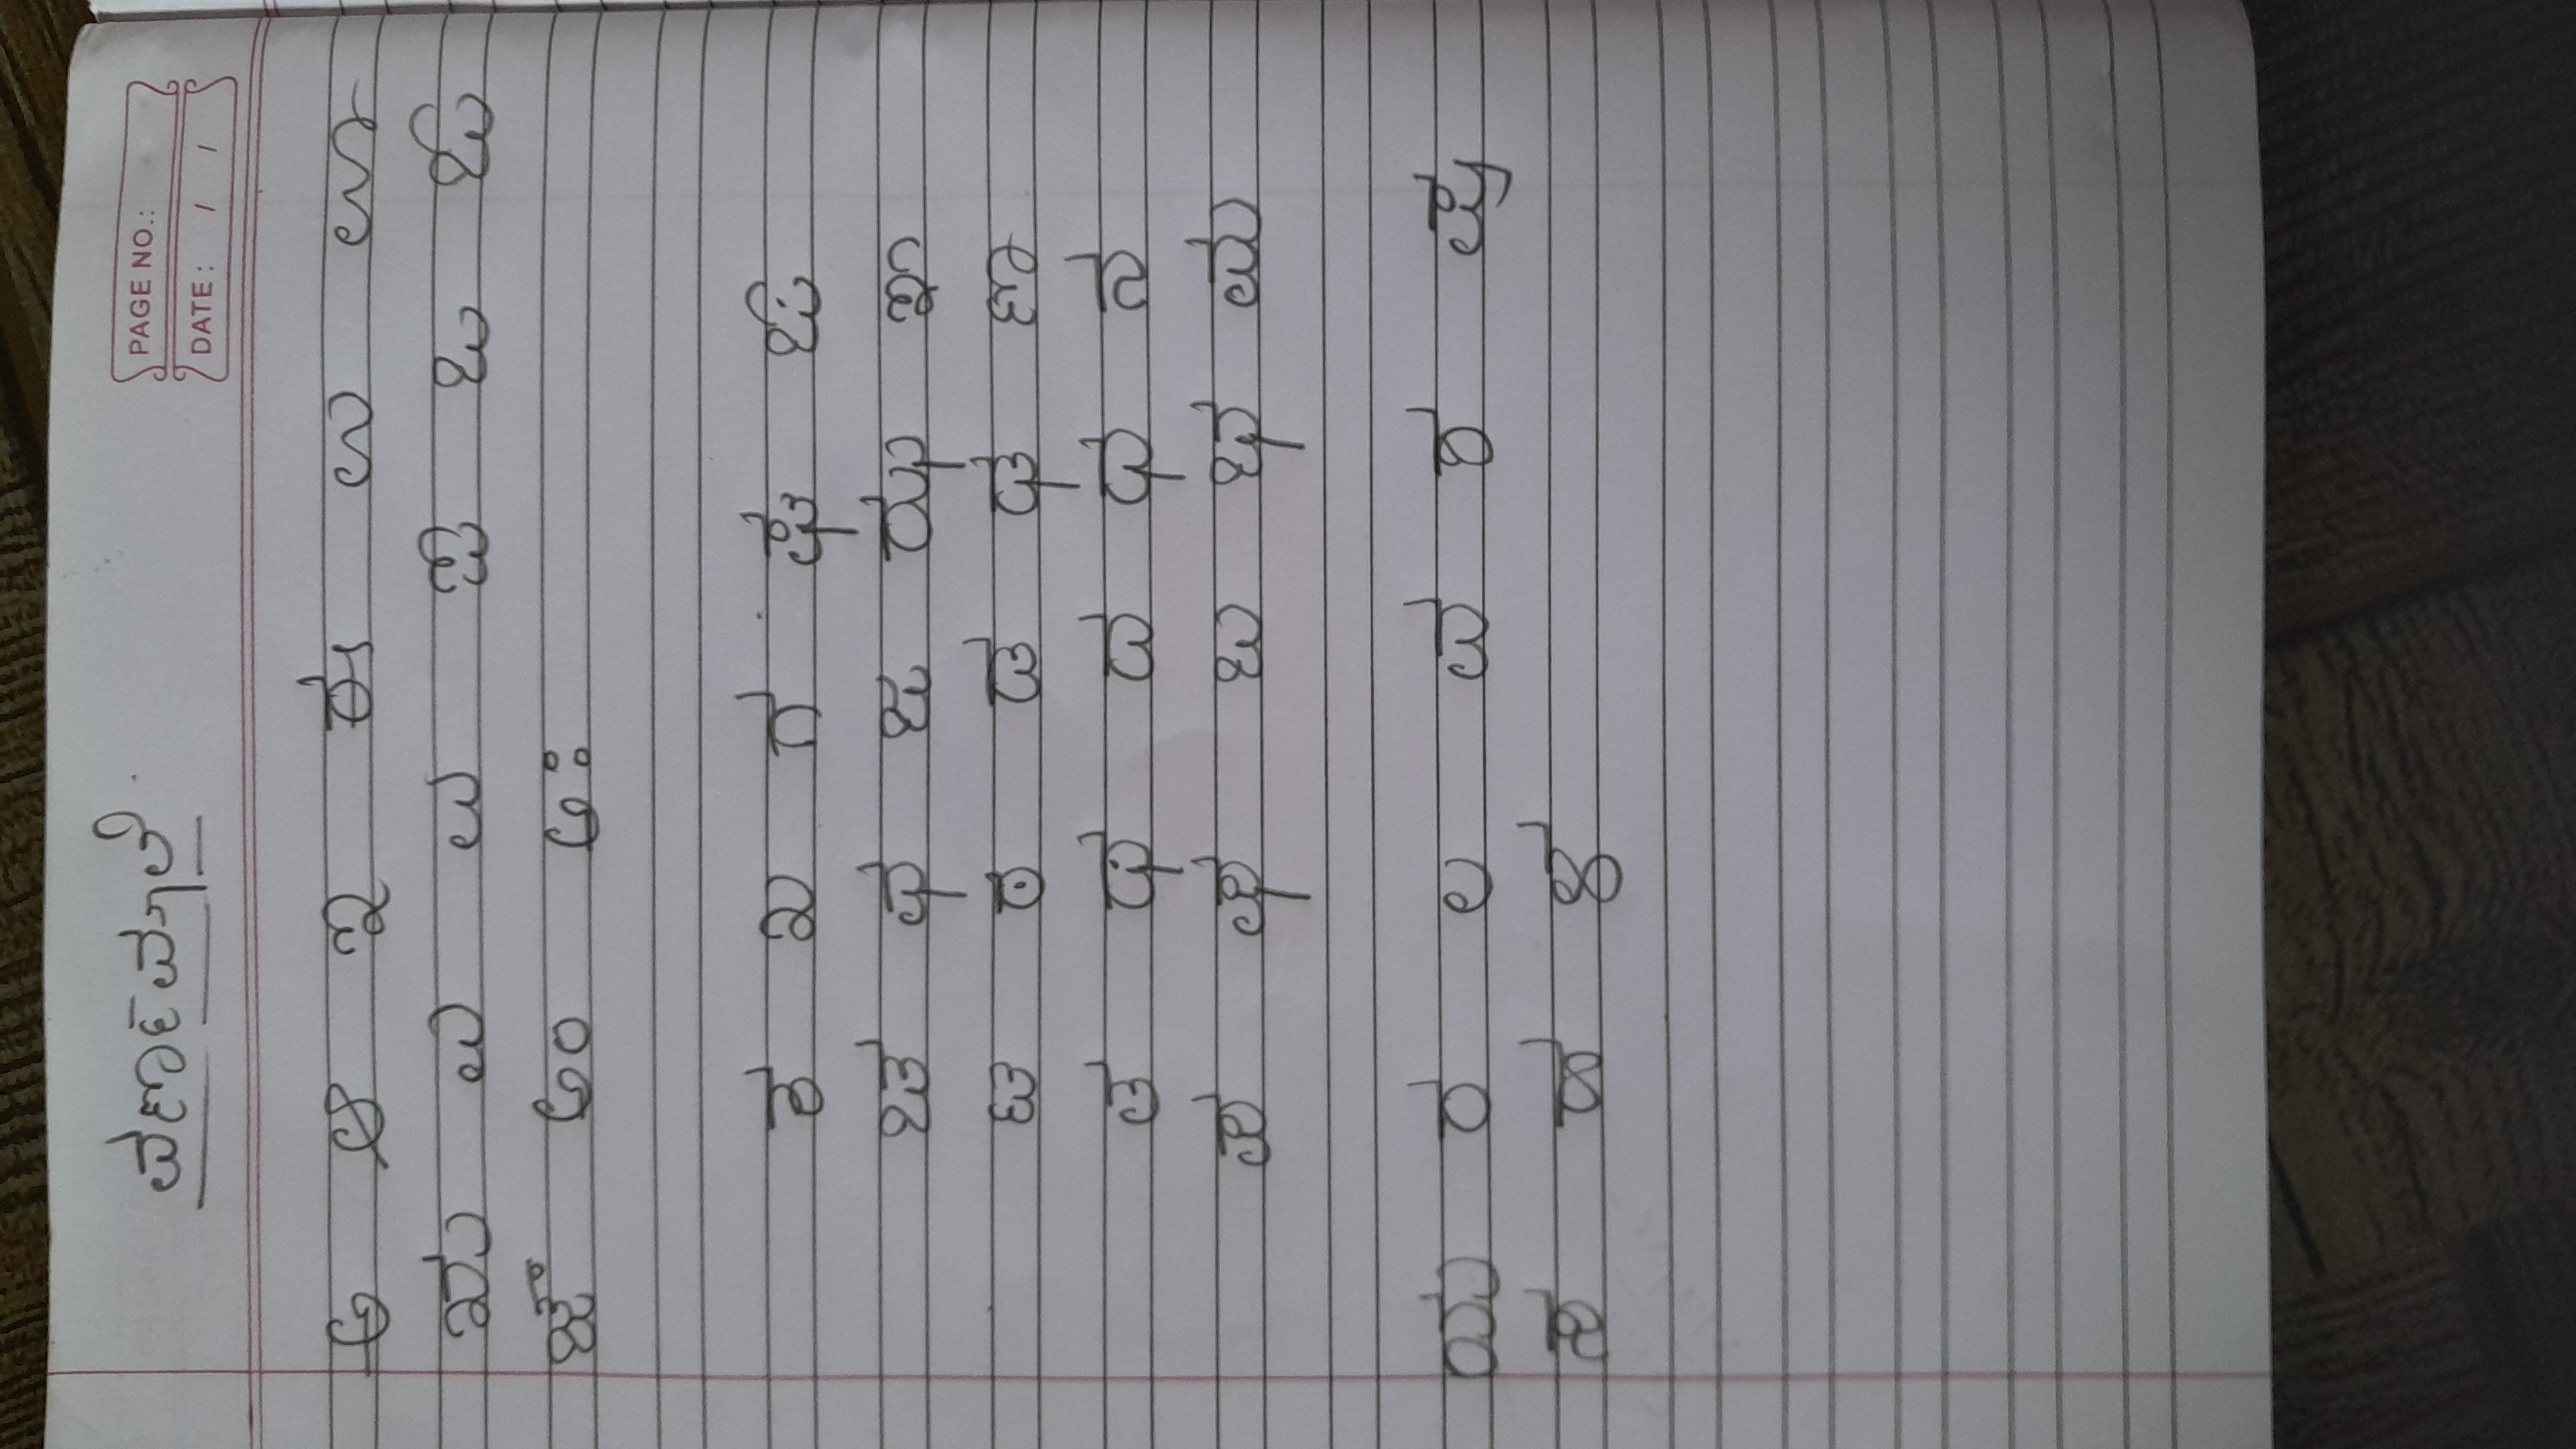 PAGE NO.:
DATE: / / /
ವರ್ಣಮಾಲೆ
ಅ ಆ ಇ ಈ ಉ ಊ
ಋ ಎ ಏ ಐ ಒ ಓ
ಔ ಅಂ ಅಃ
ಕ ಖ ಗ ಘ ಙ
ಚ ಛ ಜ ಝ ಞ
ಟ ಠ ಡ ಢ ಣ
ತ ಥ ದ ಧ ನ
ಪ ಫ ಬ ಭ ಮ
ಯ ರ ಲ ವ ಶ ಷ
ಸ ಹ ಳ